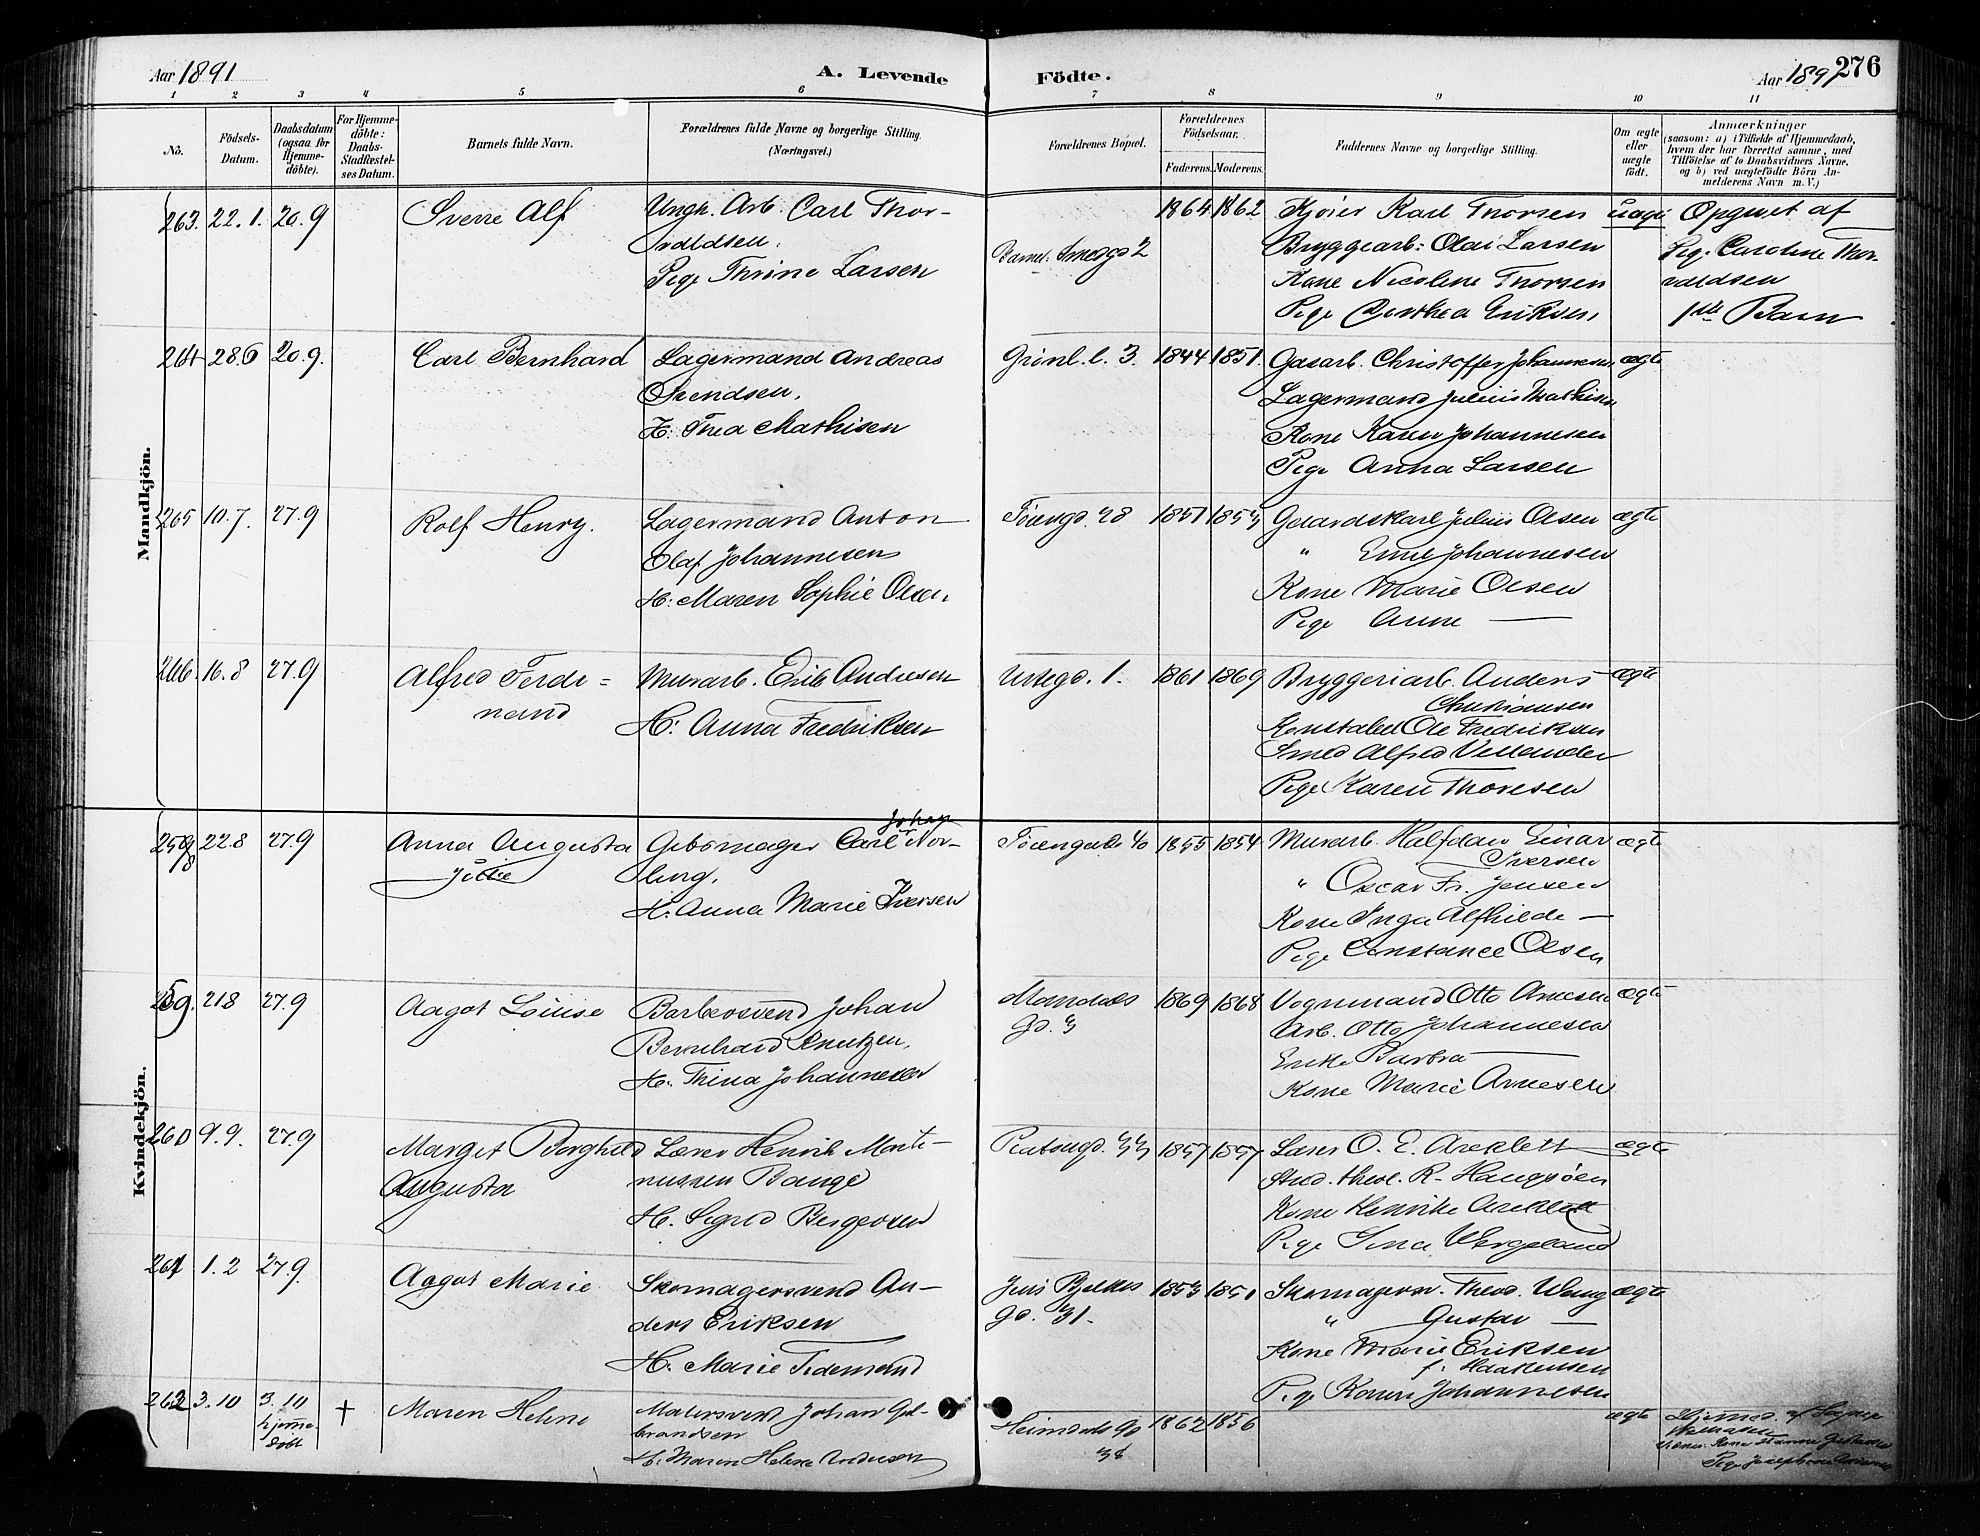 Aar 1891
A. Levende
Födte.
Aar 1891
276
1 2 3 4 5 6 7 8 9 10 11
No.
Födsels-
Datum.
Daabsdatum
(ogsaa for
Hjemme-
döbte).
For Hjemme-
döbte:
Daabs-
Stadfæstel-
ses Datum.
Barnets fulde Navn.
Forældrenes fulde Navne og borgerlige Stilling.
(Næringsvei.)
Forældrenes Bopæl.
Forældrenes
Födselsaar.
Faderens. Moderens.
Faddernes Navne og borgerlige Stilling.
Om ægte
eller
uægte
födt.
Anmærkninger
(saasom: a) i Tilfælde af Hjemmedaab,
hvem der har forrettet samme, med
Tilföielse af to Daabsvidners Navne,
og b) ved uægtefödte Börn An-
melderens Navn m. V.)
Mandkjön.
263. 22.1. 20.9
Sverre Alf
Ungk. Arb. Carl Thor-
valdsen.
Pige Thrine Larsen
Smedgd 2
1864 1862
Kjører Karl Thorsen
Bryggearb: Olai Larsen
Kone Nicoline Thorsen
Pige Dorthea Eriksen,
uægte
Opgivet af
Pige Caroline Thor-
valdsen
1ste Barn
264 28.6 20.9.
Carl Bernhard
Lagermand Andreas
Svendsen.
H: Thea Mathisen
Grønl. l. 3.
1844 1851.
Gasarb. Christoffer Johannesen
Lagermand Julius Mathisen
Kone Karen Johannesen
Pige Anna Larsen
ægte
265 10.7. 27.9
Rolf Henry.
Lagermand Anton
Olaf Johannesen
H: Maren Sophie Olsen.
Tøiengd. 28
1851 1853
Gaardskarl Julius Olsen
" Emil Johannesen
Kone Marie Olsen
Pige Anne —
ægte
266. 16.8 27.9
Alfred Ferdi=
nand
Murarb. Erik Andresen
H: Anna Fredriksen
Urtegd. 1.
1861 1869
Bryggeriarb. Anders
Christiansen
Konstabel Ole Fredriksen
Smed Alfred
Pige Karen Thoresen
ægte
Kvindekjön.
258 22.8 27.9
Anna Augusta
Gibsmager Carl Johan Nor-
ling.
H. Anna Marie Iversen
Tøiengade 40
1855 1854
Murarb. Halfdan Einar
Iversen
" Oscar Fr. Jensen
Kone Inga Alfhilde —
Pige Constance Olsen
ægte
259. 21.8 27.9
Aagot Louise
Barbersvend Johan
Bernhard Knutzen.
H. Trina Johannesen
Mandals
Gd. 3
1869 1868
Vognmand Otto Arnesen
Arb. Otto Johannesen
Enke Barbra —
Kone Marie Arnesen
ægte
260 9.9. 27.9
Margit Borghild
Augusta
Lærer Henrik Marti-
nussen Bange
H. Sigrid Bergersen
Platougd. 33
1857 1857
Lærer O. E. Areklett
Stud. theol. R. Haugsøen
Kone Henrikke Areklett
Pige Sina Wergeland
ægte
261 1.2 27.9.
Aagot Marie
Skomagersvend An-
ders Eriksen
H. Marie Tidemand
Jens Bjelkes
Gd. 31.
1853 1851
Skomagersv. Theod. Wang
" Gustav —
Kone Marie Eriksen
f. Haakensen
Pige Karen Johannesen
ægte
262 3.10 3.10
hjemme-
døbt
+
Maren Helene
Malersvend Johan Gul-
brandsen
H. Maren Helene Andersen
Heimdals Gd
1862 1856
ægte
Hjemmed. af
Kone Hanna
Pige Josephine